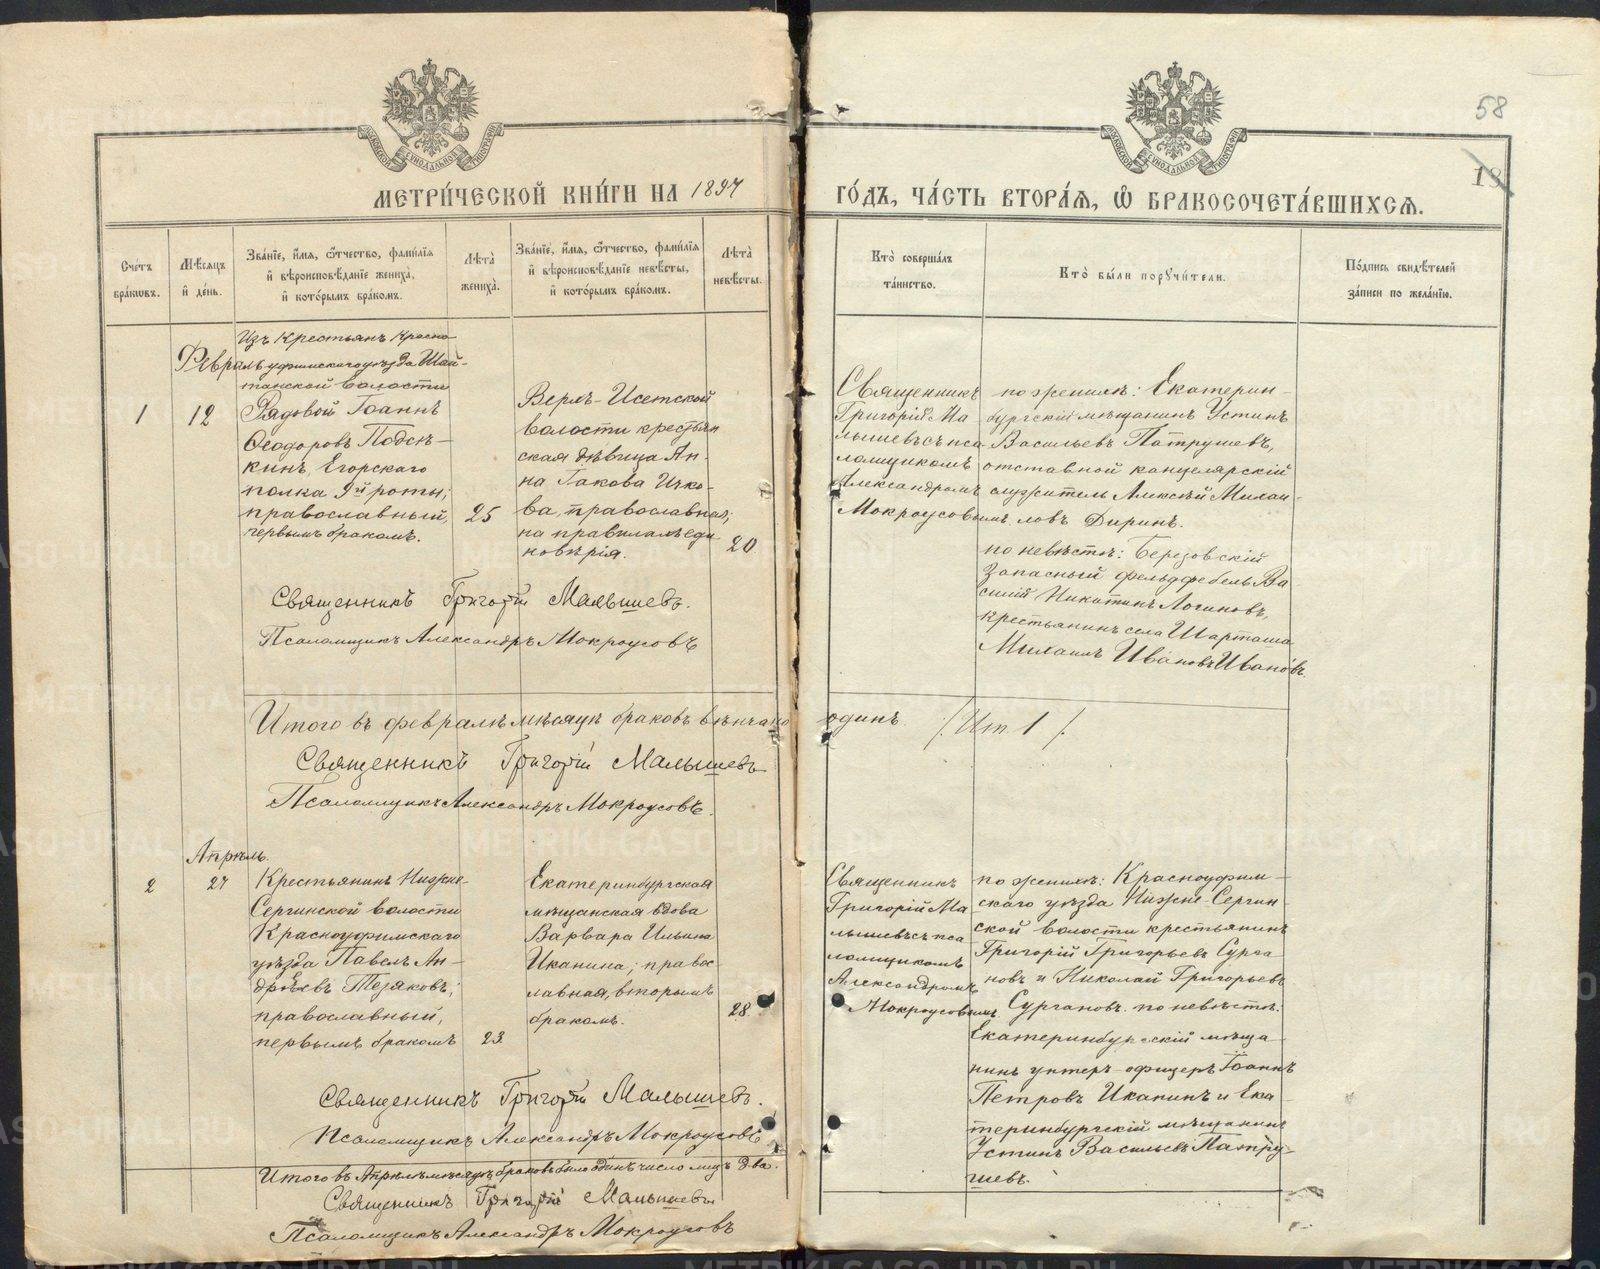 МЕТРИ́ЧЕСКОЙ КНИ́ГИ НА 1897
ГО́ДЪ, ЧА́СТЬ ВТОРА́Я, Ѽ БРАКОСОЧЕТА́ВШИХСЯ.
58
Сче́тъ бра́кѡвъ.
Мѣ́сяцъ и҆ день.
Зва́нїе, и҆́мя, ѻ҆́тчество, фами́лїя и҆ вѣроисповѣ́данїе жениха̀, и҆ кото́рымъ бра́комъ.
Лѣта̀ жениха̀.
Зва́нїе, и҆́мя, ѻ҆́тчество, фами́лїя и҆ вѣроисповѣ́данїе невѣ́сты, и҆ кото́рымъ бра́комъ.
Лѣта̀ невѣ́сты.
Кто̀ соверша́лъ та́инство.
Кто̀ бы́ли порꙋчи́тели.
По́дпись свидѣ́телей за́писи по жела́нїю.
1
Февраль
12
Изъ Крестьянъ Красно-
уфимскаго уѣзда Шай-
танской волости
Рядовой Іоаннъ
Ѳеодоровъ Подск-
кинъ, Егорскаго
полка 9й роты;
православный,
первымъ бракомъ.
25
Верхъ-Исетской
волости крестьян
ская дѣвица Ан-
на Іакова Ичко-
ва, православная,
на правилахъ еди
новѣрія.
20
Священникъ
Григорій Ма
лышевъ съ пса
ломщикомъ
Александромъ
Мокроусовымъ
по женихѣ: Екатерин-
бургскій мѣщанинъ Устинъ
Васильевъ Патрушевъ,
отставной канцелярскій
служитель Алексѣй Михаи-
ловъ Диринъ.
по невѣстѣ: Березовскій
запасный фельдфебель Ва
силій Никитинъ Логиновъ,
крестьянинъ села Шарташа
Михаилъ Ивановъ Ивановъ.
Священникъ Григорій Малышевъ.
Псаломщикъ Александръ Мокроусовъ
Итого въ февралѣ мѣсяцѣ браковъ вѣнчано одинъ /: Ит. 1 /:
Священникъ Григорій Малышевъ
Псаломщикъ Александръ Мокроусовъ.
2
Апрѣль.
27
Крестьянинъ Нижне-
Сергинской волости
Красноуфимскаго
уѣзда Павелъ Ан-
дреевъ Тезяковъ;
православный,
первымъ бракомъ
23.
Екатеринбургская
мѣщанская вдова
Варвара Ильина
Иканина; правос
лавная, вторымъ
бракомъ.
28
Священникъ
Григорій Ма
лышевъ съ пса
ломщикомъ
Александромъ
Мокроусовымъ
по женихѣ: Красноуфим-
скаго уѣзда Нижне-Сергин-
ской волости крестьянинъ
Григорій Григорьевъ Сурга
новъ и Николай Григорьевъ
Сургановъ. по невѣстѣ:
Екатеринбургскій мѣща-
нинъ унтеръ-офицеръ Іоаннъ
Петровъ Иканинъ и Ека-
теринбургскій мѣщанинъ
Устинъ Васильевъ Патру-
шевъ.
Священникъ Григорій Малышевъ.
Псаломщикъ Александръ Мокроусовъ
Итого въ Апрѣлѣ мѣсяцѣ браковъ было одинъ число лицъ два.
Священникъ Григорій Малышевъ
Псаломщикъ Александръ Мокроусовъ